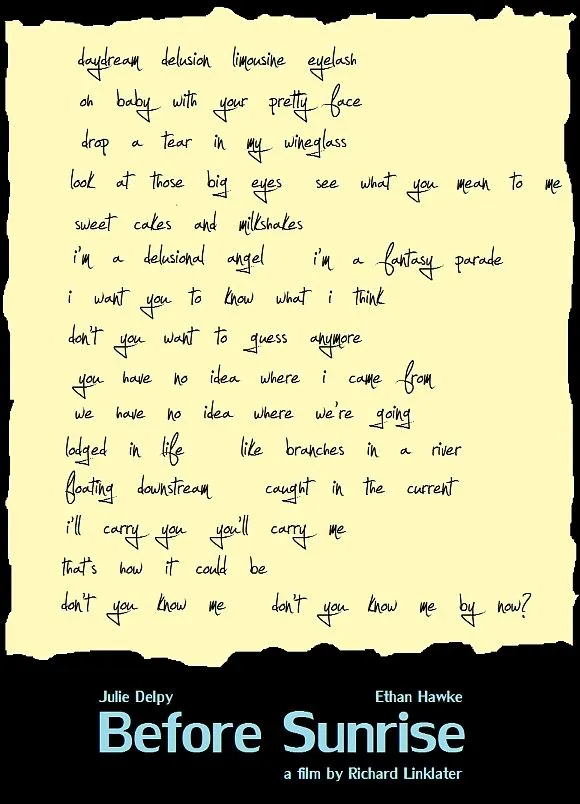 daydream delusion limousine eyelash
oh baby with your pretty face
drop a tear in my wineglass
look at those big eyes see what you mean to me
sweet cakes and milkshakes
i'm a delusional angel i'm a fantasy parade
i want you to know what i think
don't you want to guess anymore
you have no idea where i came from
we have no idea where we're going
lodged in life like branches in a river
floating downstream caught in the current
i'll carry you you'll carry me
that's how it could be
don't you know me don't you know me by now?
Julie Delpy Ethan Hawke
Before Sunrise
a film by Richard Linklater